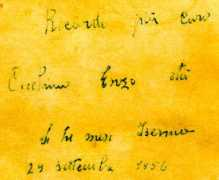 Ricordo più caro
Enzo
di tre mesi Isernia
29 settembre 1956